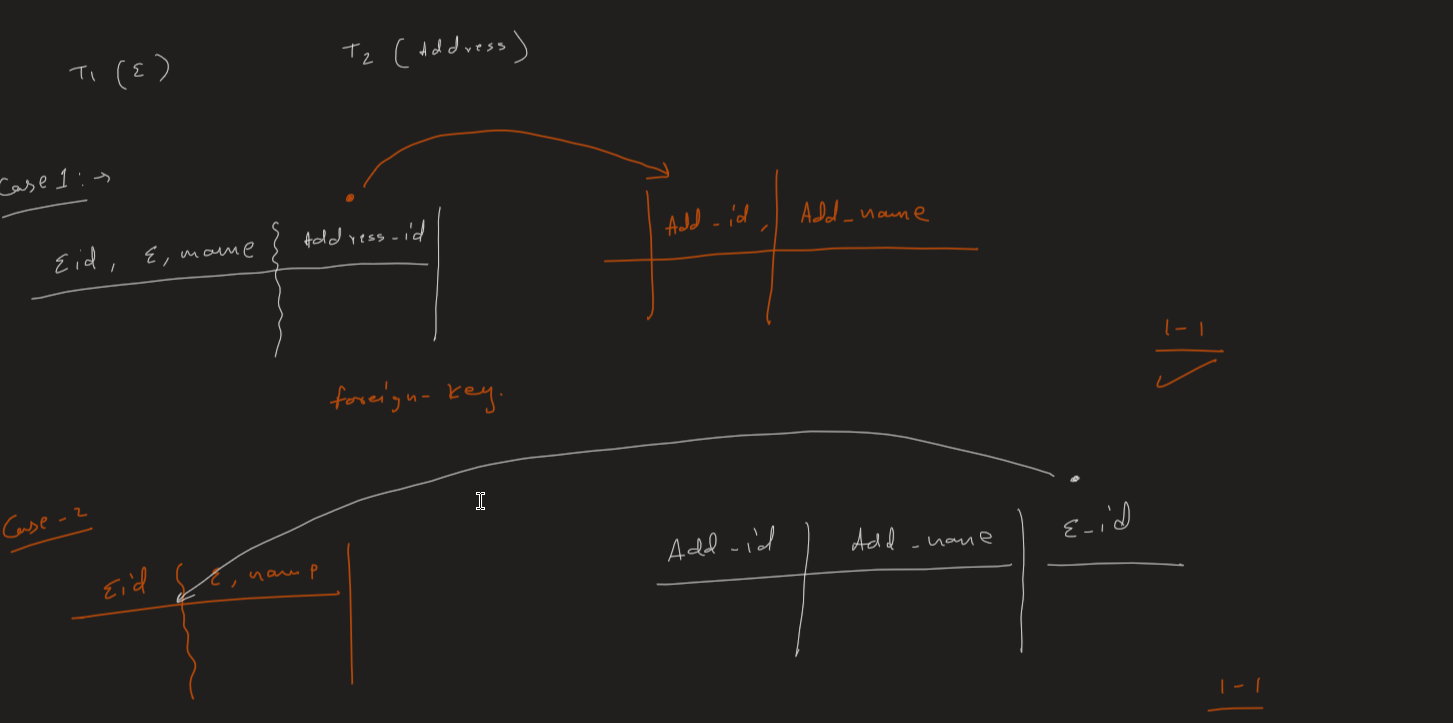 T1 (E)
T2 (Address)
Case 1: →
Eid, E,name Address-id
Add-id, Add-name
1-1
foreign-key.
Case-2
Eid E,name
Add-id Add-name E-id
1-1